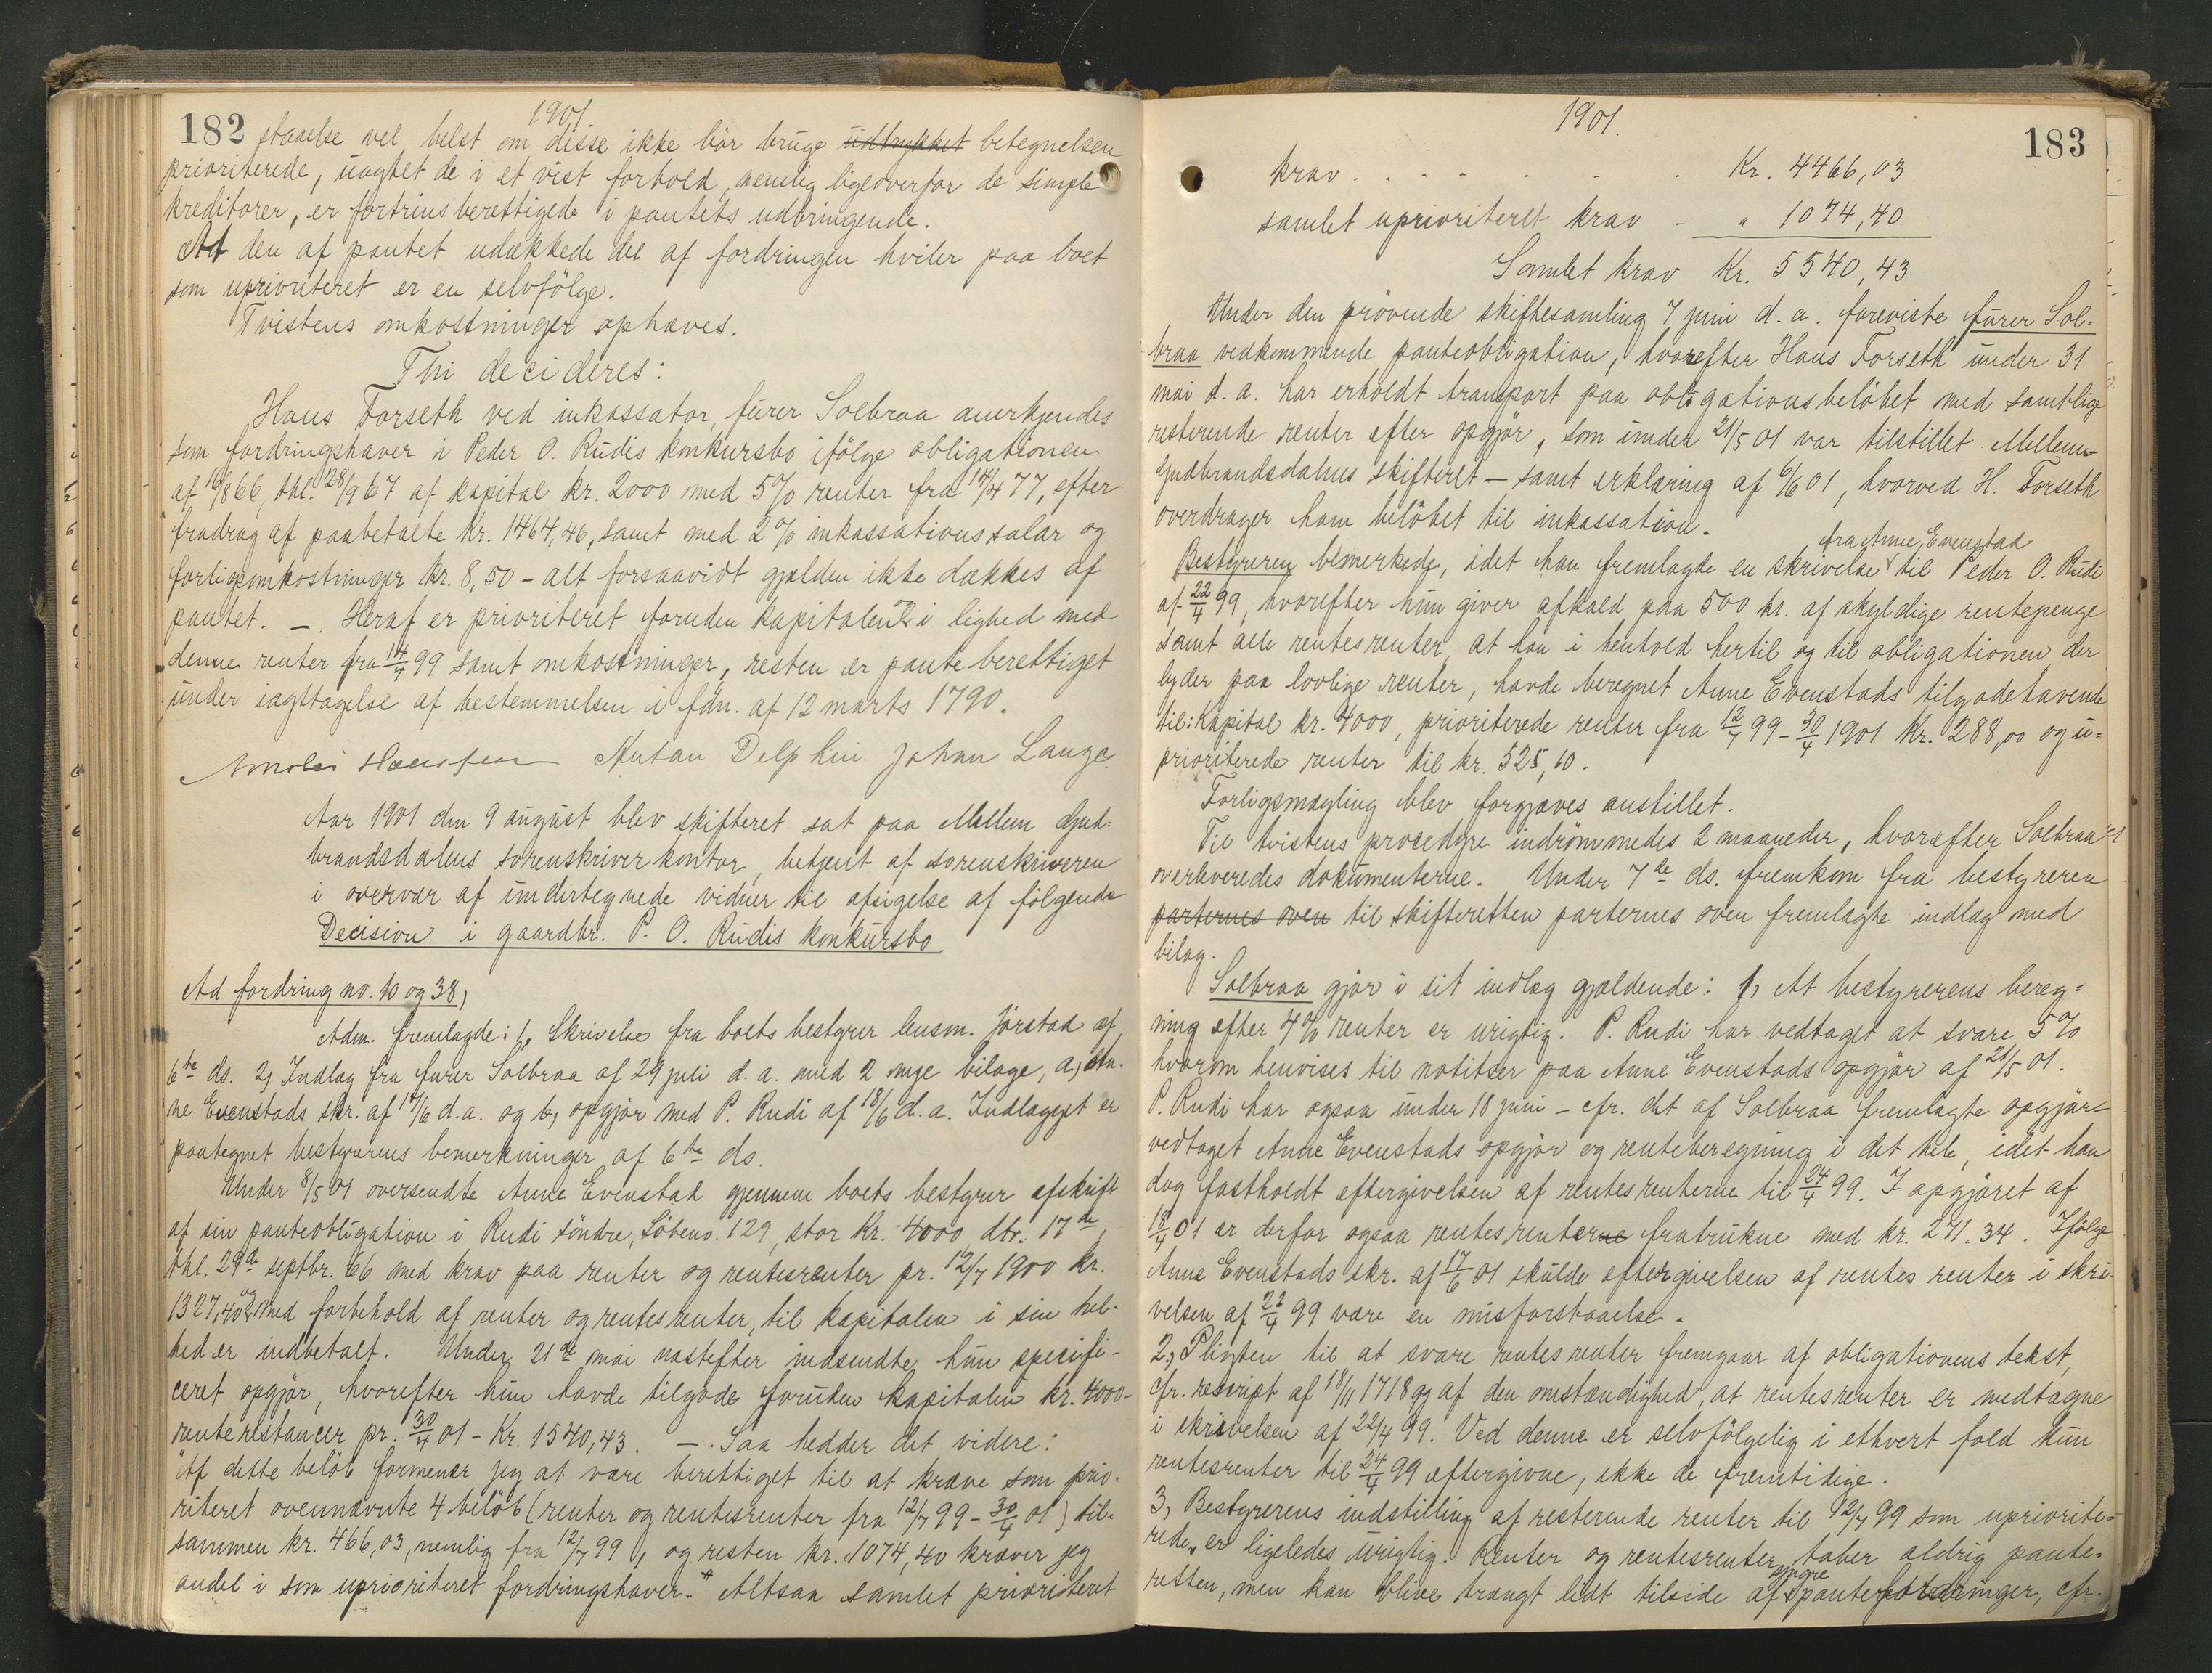 182
1901
staaelse vel, helst om disse ikke bör bruge udtrykket betegnelsen
prioriterede, uagtet de i et vist forhold, nemlig ligeoverfor de simple
kreditorer, er fortrinsberettigede i pantets udbringende.
At den af pantet udækkede del af fordringen hviler paa boet
som uprioriteret er en selvfölge.
Tvistens omkostninger ophæves.
Thi decideres:
Hans Forseth ved inkassator, furer Solbraa anerkjendes
som fordringshaver i Peder O. Rudis konkursbo ifölge obligationen
af 16/8 66, thl. 28/9 67 af kapital kr. 2000 med 5% renter fra 14/4 77, efter
fradrag af paabetalte kr. 1464,46, samt med 2% inkassationssalær og
forligsomkostninger kr. 8,50 – alt forsaavidt gjælden ikke dækkes af
pantet. –. Heraf er prioriteret foruden kapitalen i lighed med
denne renter fra 14/4 99 samt omkostninger, resten er panteberettiget
under iagttagelse af bestemmelsen i fdn. af 12 marts 1790.
Anton Delphin. Johan Lange.
Aar 1901 den 9 august blev skifteret sat paa Mellem Gud-
brandsdalens sorenskriverkontor, betjent af sorenskriveren
i overvær af undertegnede vidner til afsigelse af fölgende
Decision i gaardbr. P. O. Rudis konkursbo.
Ad fordring no. 10 og 38,
Adm. fremlagde: 1, Skrivelse fra boets bestyrer lensm. Jörstad af
6te ds. 2, Indlæg fra furer Solbraa af 29 juli d. a. med 2 nye bilage, a, An-
ne Evenstads skr. af 17/6 d.a. og b, opgjör med P. Rudi af 18/6 d.a. Indlægget er
paategnet bestyrerens bemerkninger af 6te ds.
Under 8/5 01 oversendte Anne Evenstad gjennem boets bestyrer afskrift
af sin panteobligation i Rudi söndre, Löbeno. 129, stor kr. 4000 dtr. 17de,
thl. 29de septbr. 66 med krav paa renter og rentesrenter pr. 12/7 1900 kr.
1327,40 og med forbehold af renter og rentesrenter, til kapitalen i sin hel-
hed er indbetalt. Under 21de mai næstefter indsendte hun specifi-
ceret opgjör, hvorefter hun havde tilgode foruden kapitalen kr. 4000 –
renterestancer pr. 30/4 01 – Kr. 1540,43. –. Saa hedder det videre:
"Af dette belöb formener jeg at være berettiget til at kræve som prio-
riteret ovennævnte 4 belöb (renter og rentesrenter fra 12/7 99 – 30/4 01) til-
sammen kr. 466,03, nemlig fra 12/7 99, og resten kr. 1074,40 kræver jeg
andel i som uprioriteret fordringshaver." Altsaa samlet prioriteret
1901.
183
krav . . . . . . . Kr. 4466,03
samlet uprioriteret krav – " 1074,40
Samlet krav Kr. 5540,43
Under den prövende skiftesamling 7 juni d. a. foreviste furer Sol-
braa vedkommende panteobligation, hvorefter Hans Forseth under 31
mai d. a. har erholdt transport paa obligationsbelöbet med samtlige
resterende renter efter opgjör, som under 21/5 01 var tilstillet Mellem-
Gudbrandsdalens skifteret – samt erklæring af 6/6 01, hvorved H. Forseth
overdrager ham belöbet til inkassation.
Bestyreren bemerkede, idet han fremlagde en skrivelse fra Anne Evenstad til Peder O. Rudi
af 22/4 99, hvorefter hun giver afkald paa 500 kr. af skyldige rentepenge
samt alle rentesrenter, at han i henhold hertil og til obligationen, der
lyder paa lovlige renter, havde beregnet Anne Evenstads tilgodehavende
til: Kapital kr. 4000, prioriterede renter fra 12/7 99 – 30/4 1901 Kr. 288,00 og u-
prioriterede renter til kr. 525,10.
Forligsmægling blev forgjæves anstillet.
Til tvistens procedyre indrömmedes 2 maaneder, hvorefter Solbraa
overleveredes dokumenterne. Under 7de ds. fremkom fra bestyreren
parternes oven til skifteretten parternes oven fremlagte indlæg med
bilag.
Solbraa gjör i sit indlæg gjældende: 1, At bestyrerens bereg-
ning efter 4% renter er urigtig. P. Rudi har vedtaget at svare 5%
hvorom henvises til notitser paa Anne Evenstads opgjör af 21/5 01.
P. Rudi har ogsaa under 18 juni – cfr. det af Solbraa fremlagte opgjör –
vedtaget Anne Evenstads opgjör og renteberegning i det hele, idet han
dog fastholdt eftergivelsen af rentesrenterne til 24/4 99. I opgjöret af
18/4 01 er derfor ogsaa rentesrenterne fratrukne med kr. 271.34. Ifölge
Anne Evenstads skr. af 17/6 01 skulde eftergivelsen af rentes renter i skri-
velsen af 22/4 99 være en misforstaaelse.
2, Pligten til at svare rentesrenter fremgaar af obligationens tekst,
cfr. rescript af 18/11 1718 og af den omstændighed, at rentesrenter er medtagne
i skrivelsen af 22/4 99. Ved denne er selvfölgelig i ethvert fald kun
rentesrenter til 24/4 99 eftergivne, ikke de fremtidige.
3, Bestyrerens indstilling af resterende renter til 12/7 99 som upriorite-
rede, er ligeledes urigtig. Renter og rentesrenter taber aldrig pante-
retten, men kan blive trængt lidt tilside af yngre pantefordringer, cfr.